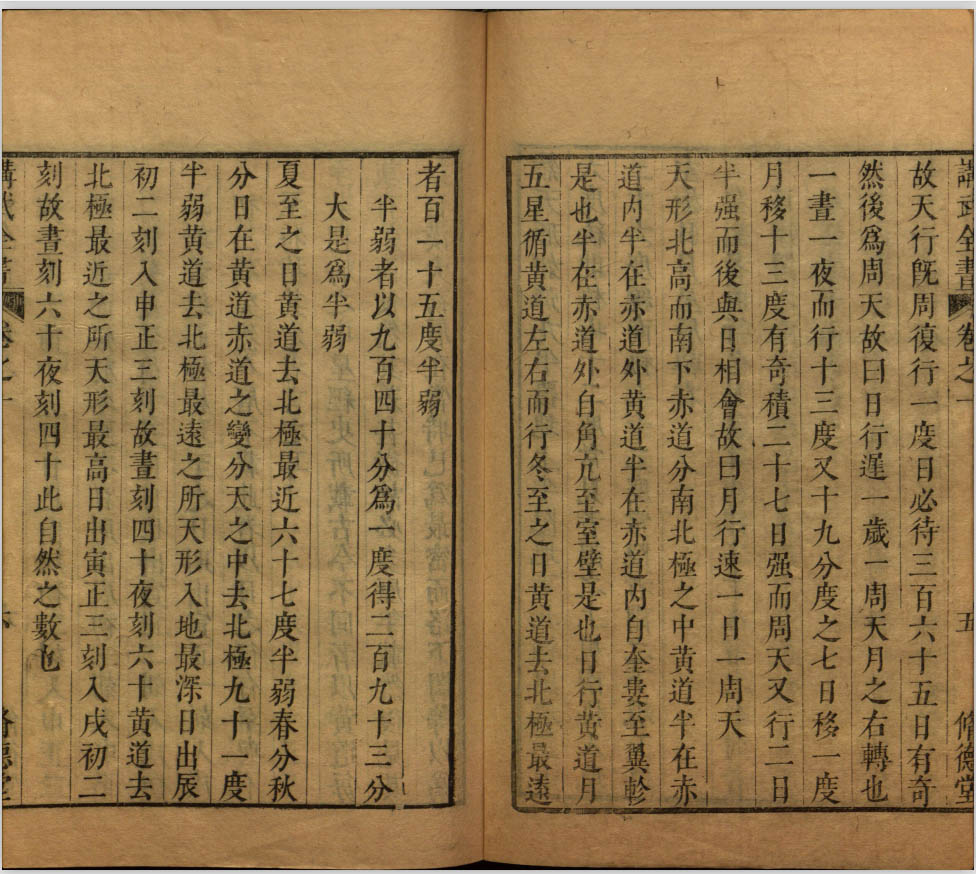 講武全書 卷之一 五 脩德堂
故天行旣周復行一度日必待三百六十五日有奇
然後爲周天故曰日行遲一歲一周天月之右轉也
一晝一夜而行十三度又十九分度之七日移一度
月移十三度有奇積二十七日强而周天又行二日
半强而後與日相會故曰月行速一日一周天
天形北高而南下赤道分南北極之中黃道半在赤
道内半在赤道外黃道半在赤道内自奎婁至翼軫
是也半在赤道外自角亢至室壁是也日行黃道月
五星循黃道左右而行冬至之日黃道去北極最遠
者百一十五度半弱
半弱者以九百四十分爲一度得二百九十三分
大是爲半弱
夏至之日黃道去北極最近六十七度半弱春分秋
分日在黃道赤道之變分天之中去北極九十一度
半弱黃道去北極最遠之所天形入地最深日出辰
初二刻入申正三刻故晝刻四十夜刻六十黃道去
北極最近之所天形最高日出寅正三刻入戌初二
刻故晝刻六十夜刻四十此自然之數也
講武全書 卷之一 六 脩德堂